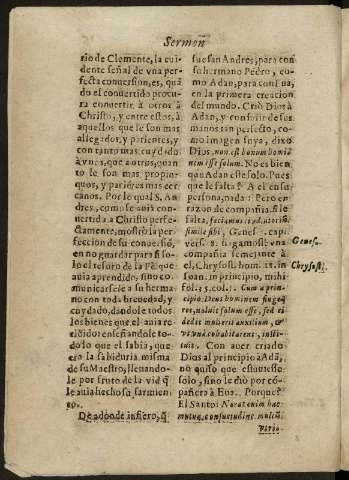 Sermon
rio de Clemente, la eui-
dente señal de vna per-
fecta conuersion, es, quã
do el conuertido procu
ra conuertir à otros à
Christo, y entre estos, à
aquellos que le son mas
allegados, y parientes, y
con tanto mas cuydado
à vnos, que a otros, quan
to le son mas propin-
quos, y parientes mas cer
canos. Por lo qual S. An
dres, como se auia conuer
tido a Christo perfe-
ctamente, mostrò la per
feccion de su conuersiõ,
en no guardar para si so-
lo el tesoro de la Fè que
auia aprendido, sino co-
municarsele a su herma-
no con toda breuedad, y
cuydado, dandole todos
los bienes que el auia re
cibido: enseñandole to-
do lo que el sabia, que
era la sabiduria misma
de su Maestro, lleuando-
le por fruto de la vid q̃
le auia hecho su sarmien
to.
De adõde infiero, q̃
fue san Andres, para con
su hermano Pedro, co-
mo Adan, para con Eua,
en la primera creacion
del mundo. Criò Dios à
Adan, y con salir de sus
manos tan perfecto, co-
mo imagen suya, dixo
Dios, non est bonum homi-
nem esse solum. No es bien
que Adan este solo. Pues
que le falta? A el en su
persona, nada: Pero en
razon de compañia, si le
falta, faciamus ei adiutoriũ
simile sibi, Genes. capi.
vers. 8. hagamosle vna
compañia semejante à
el, Chrysost. hom. 18. in
Ioan. in principio, mihi.
fol. 35. col. 1. Cum a prin-
cipio Deus hominem finge-
ret, noluit solum esse, sed ei
dedit mulieris auxilium, &
vt vnà cohabitarent, insti-
tuit. Con auer criado
Dios al principio à Adã,
no quiso que estuuiesse
solo, sino le diò por cõ-
pañera à Eua. Porque?
El Santo: Norat enim hac
mutua consuetudine multũ
Genes.
Chrysost.